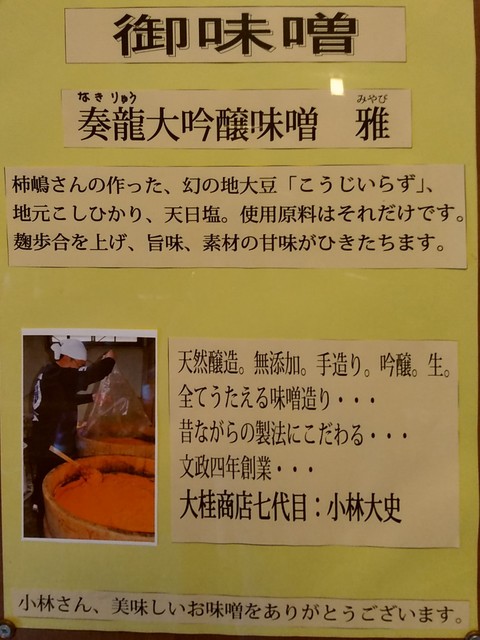 御味噌
なきりゅう
みやび
奏龍大吟醸味噌 雅
柿嶋さんの作った、幻の地大豆「こうじいらず」、
地元こしひかり、天日塩。使用原料はそれだけです。
麹歩合を上げ、旨味、素材の甘味がひきたちます。
天然醸造。無添加。手造り。吟醸。生。
全てうたえる味噌造り・・・
昔ながらの製法にこだわる・・・
文政四年創業・・・
大桂商店七代目：小林大史
小林さん、美味しいお味噌をありがとうございます。